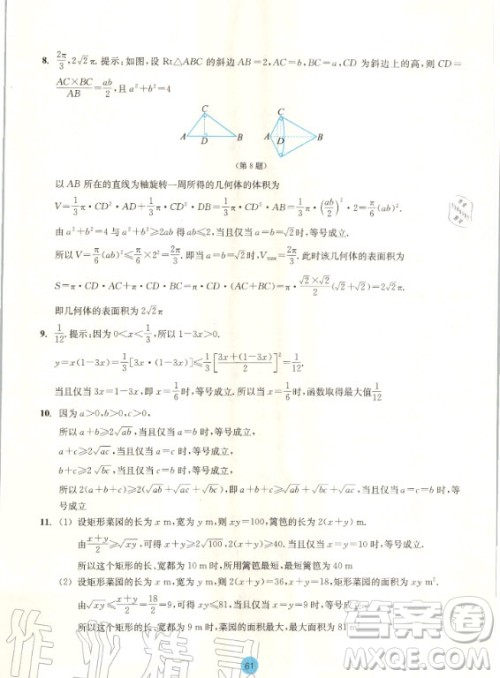 8. 2π/3, 2√2π. 提示:如图,设 Rt△ABC 的斜边 AB=2,AC=b,BC=a,CD 为斜边上的高,则 CD=
AC×BC/AB=ab/2,且 a²+b²=4
C
A D B
C
A D B
(第 8 题)
以 AB 所在的直线为轴旋转一周所得的几何体的体积为
V=1/3π·CD²·AD+1/3π·CD²·DB=1/3π·CD²·AB=1/3π·(ab/2)²·2=π/6(ab)².
由 a²+b²=4 与 a²+b²≥2ab 得 ab≤2,当且仅当 a=b=√2时,等号成立.
所以 V=π/6(ab)²≤π/6×2²=2π/3. 即当 a=b=√2时,Vmax=2π/3. 此时该几何体的表面积为
S=π·CD·AC+π·CD·BC=π·CD·(AC+BC)=π·√2×√2/2(√2+√2)=2√2π.
即几何体的表面积为 2√2π.
9. 1/12. 提示:因为 0<x<1/3,所以 1-3x>0.
y=x(1-3x)=1/3[3x·(1-3x)]≤1/3[3x+(1-3x)/2]²=1/12.
当且仅当 3x=1-3x,即 x=1/6时,等号成立.所以,当 x=1/6时,函数取得最大值1/12
10. 因为 a>0,b>0,c>0,
所以 a+b≥2√ab,当且仅当 a=b 时,等号成立,
a+c≥2√ac,当且仅当 a=c 时,等号成立,
b+c≥2√bc,当且仅当 b=c 时,等号成立.
所以 2(a+b+c)≥2(√ab+√ac+√bc),即 a+b+c≥√ab+√ac+√bc,当且仅当 a=b=c 时,等号成立.
11. (1) 设矩形菜园的长为 x m,宽为 y m,则 xy=100,篱笆的长为 2(x+y) m.
由x+y/2≥√xy,可得 x+y≥2√100,2(x+y)≥40. 当且仅当 x=y=10 时,等号成立.
所以这个矩形的长、宽都为 10 m 时,所用篱笆最短,最短篱笆为 40 m.
(2) 设矩形菜园的长为 x m,宽为 y m,则 2(x+y)=36,x+y=18,矩形菜园的面积为 xy m².
由√xy≤x+y/2=18/2=9,可得 xy≤81,当且仅当 x=y=9 时,等号成立.
所以这个矩形的长、宽都为 9 m 时,菜园的面积最大,最大面积是 81 m².
61
作业精灵
答案圈
MXQE.COM